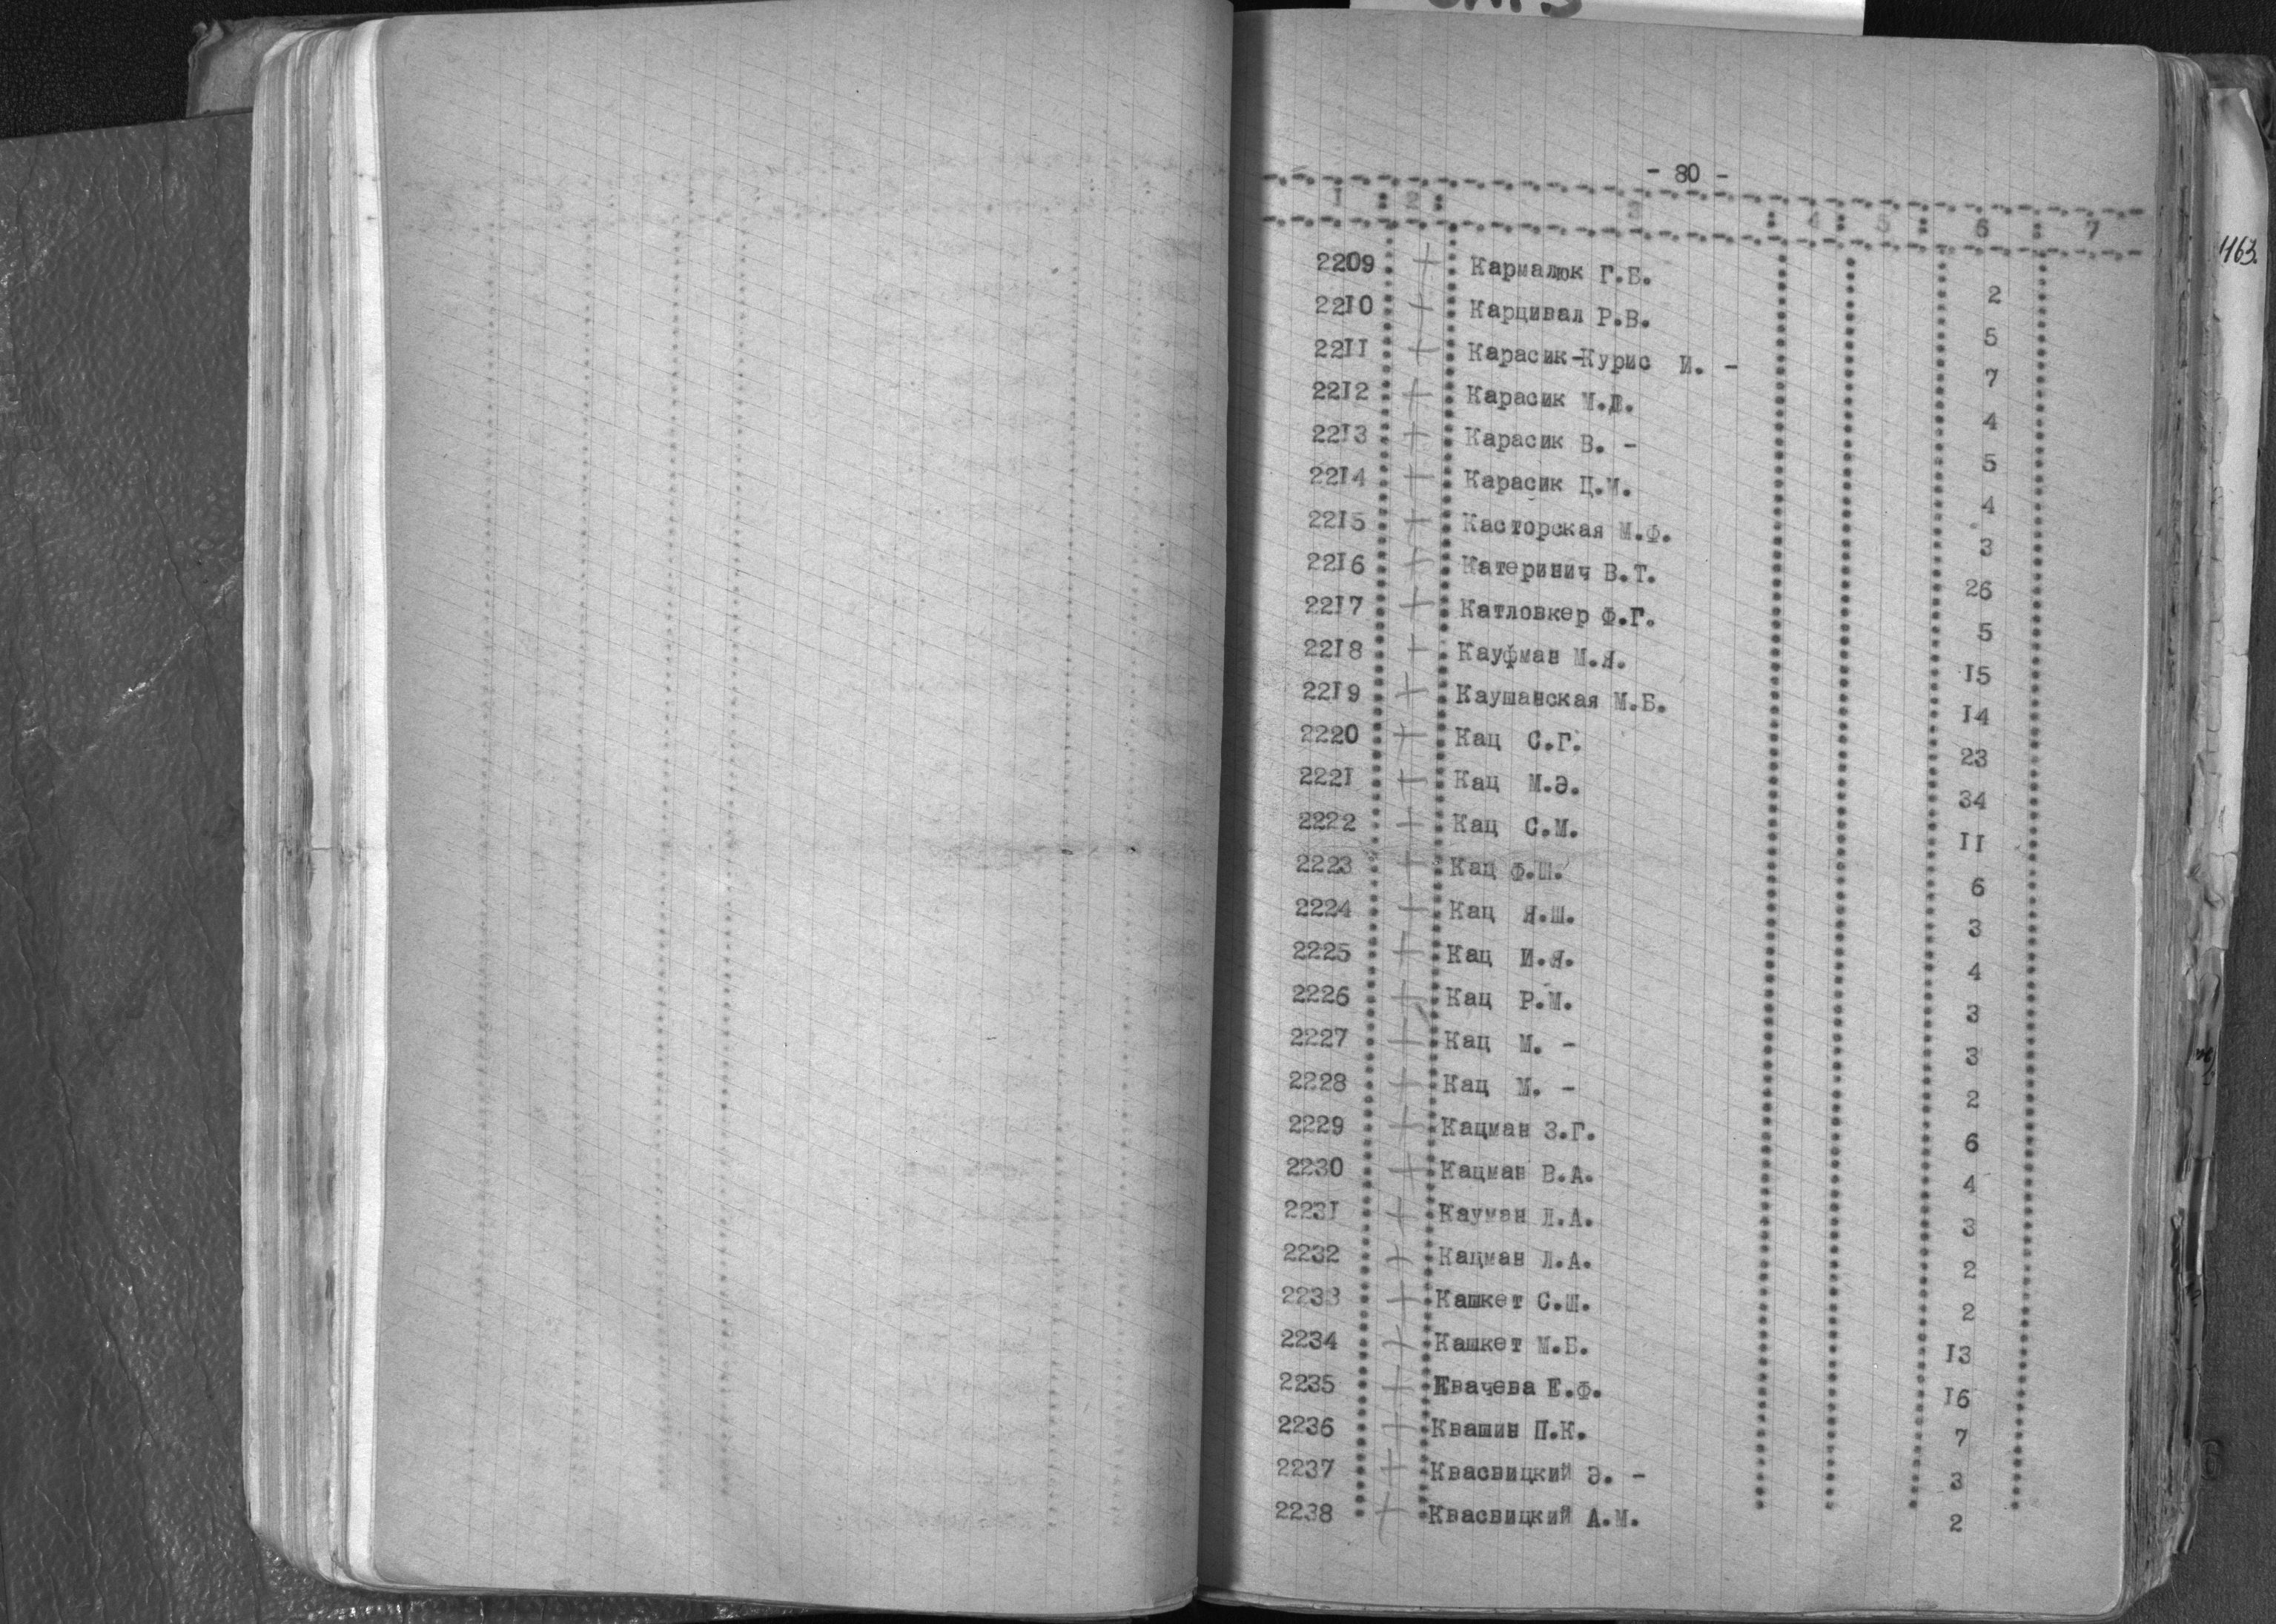 - 80 -
1 : 2 : 3 : 4 : 5 : 6 : 7
2209 + Кармалюк Г.Б. 2
2210 + Карцивал Р.В. 5
2211 + Карасик-Курис И. - 7
2212 + Карасик М.Л. 4
2213 + Карасик В. - 5
2214 + Карасик Ц.М. 4
2215 + Касторская М.Ф. 3
2216 + Катеринич В.Т. 26
2217 + Катловкер Ф.Г. 5
2218 + Кауфман М.Я. 15
2219 + Каушанская М.Б. 14
2220 + Кац С.Г. 23
2221 + Кац М.Э. 34
2222 + Кац С.М. 11
2223 + Кац Ф.Ш. 6
2224 + Кац Я.Ш. 3
2225 + Кац И.Я. 4
2226 + Кац Р.М. 3
2227 + Кац М. - 3
2228 + Кац М. - 2
2229 + Кацман З.Г. 6
2230 + Кацман В.А. 4
2231 + Кауман Л.А. 3
2232 + Кацман Л.А. 2
2233 + Кашкет С.Ш. 2
2234 + Кашкет М.Б. 13
2235 + Квачева Е.Ф. 16
2236 + Квашин П.К. 7
2237 + Квасвицкий Э. - 3
2238 + Квасвицкий А.М. 2
1163.